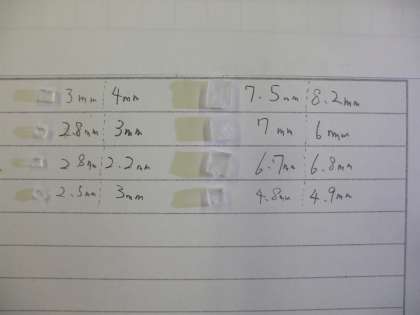 3mm 4mm 7.5mm 8.2mm
2.8mm 3mm 7mm 6mm
2.8mm 2.2mm 6.7mm 6.8mm
2.5mm 3mm 4.8mm 4.9mm